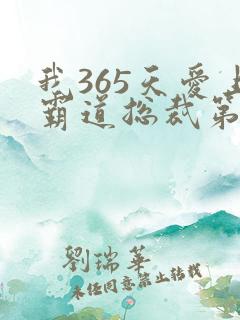 我365天爱上
霸道总裁第
劉瑞華
未经同意禁止转载